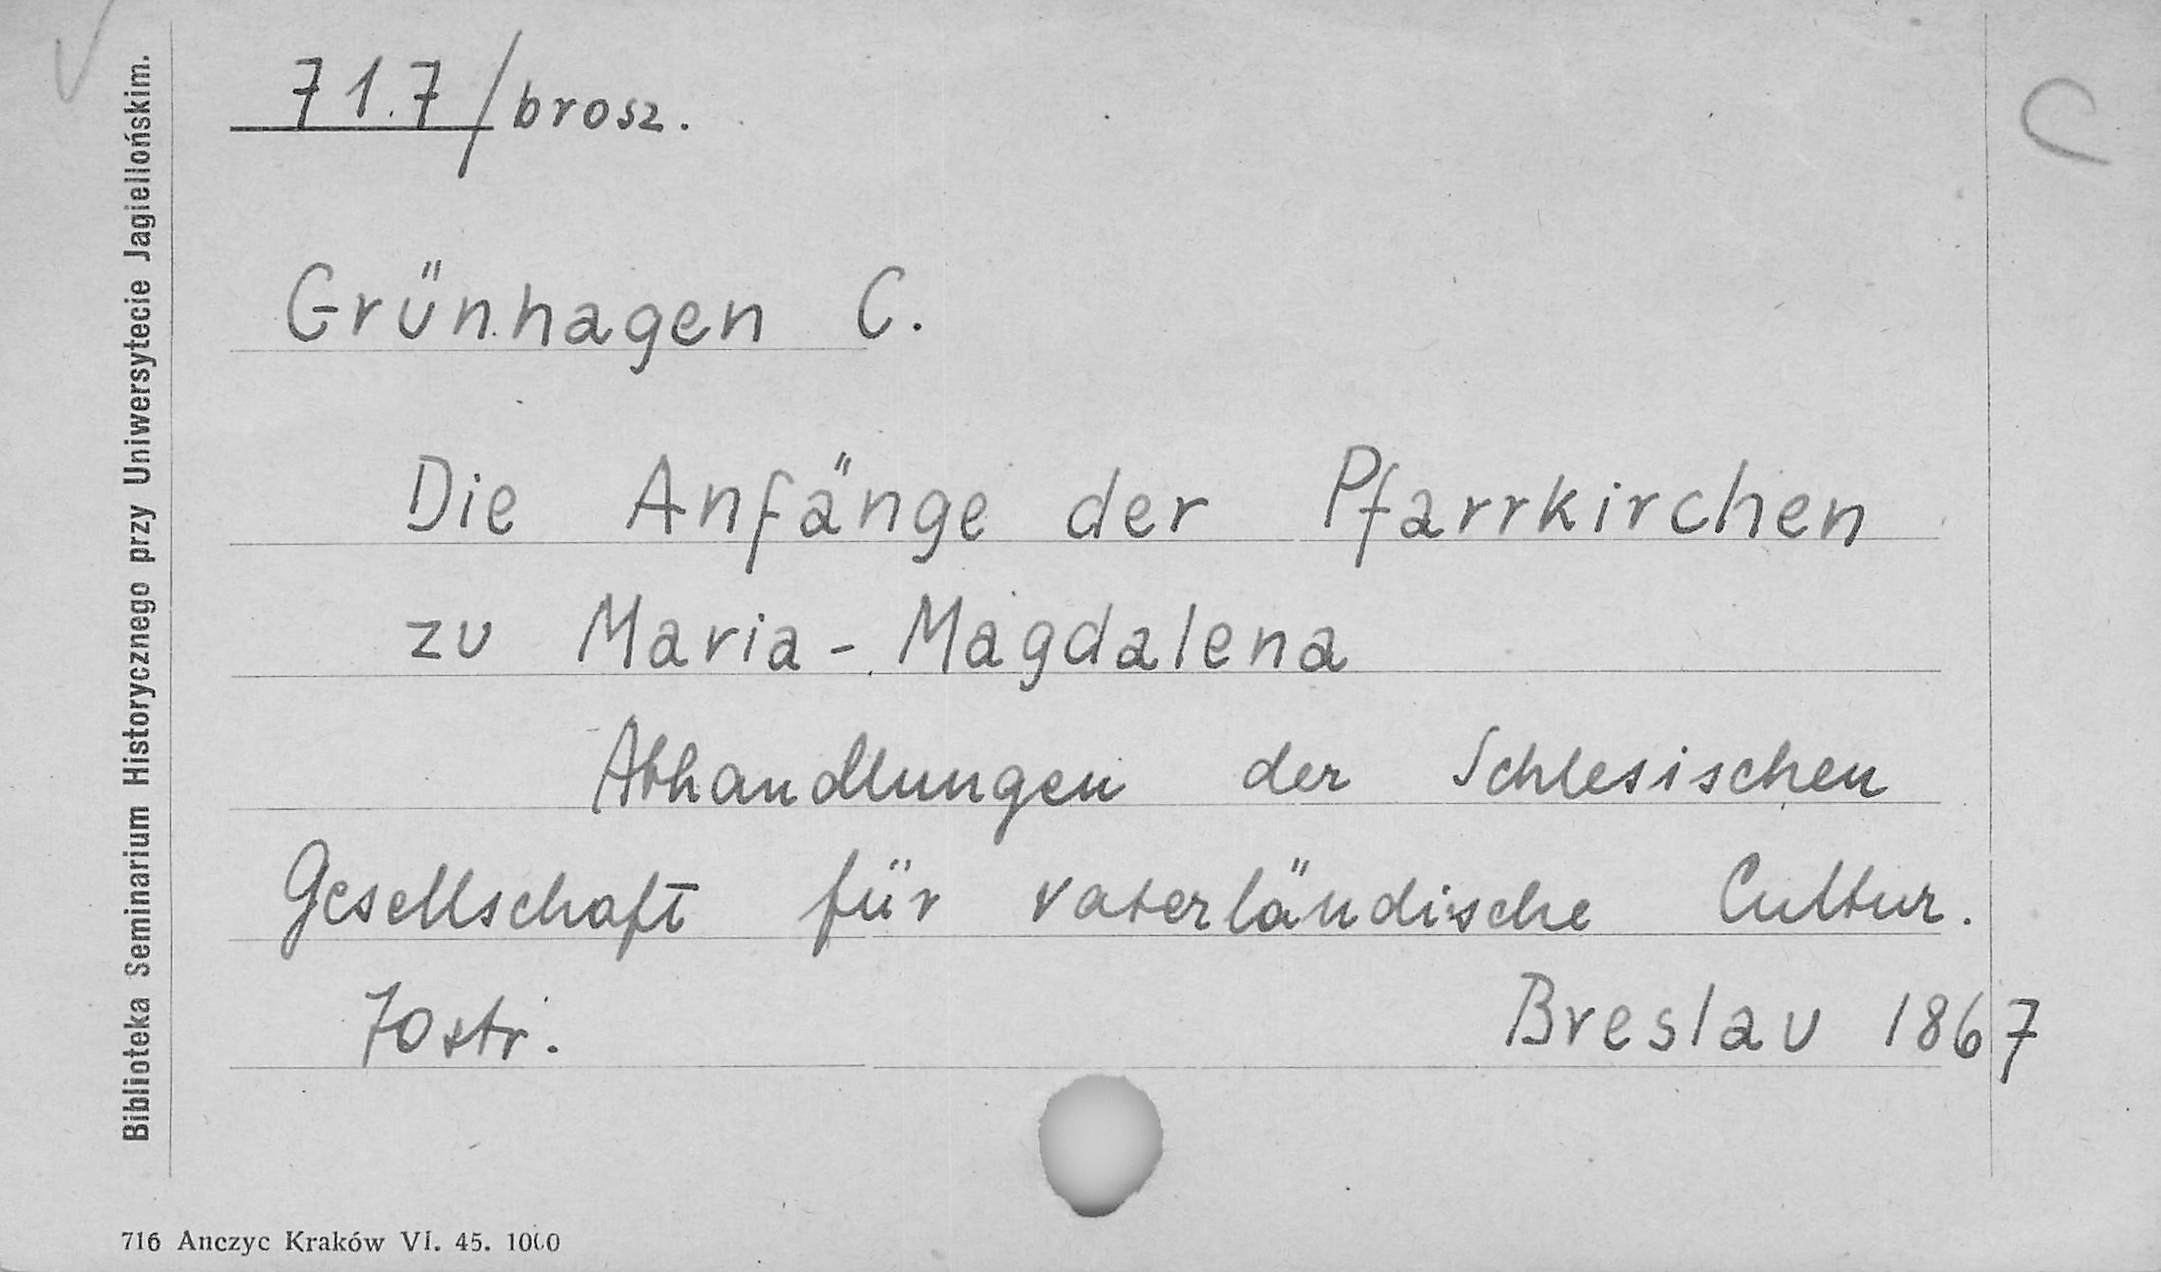 717/brosz.
C
Grünhagen C.
Die Anfänge der Pfarrkirchen
zu Maria-Magdalena
Abhandlungen der Schlesischen
Gesellschaft für vaterländische Cultur.
70 str. Breslau 1867
Biblioteka Seminarium Historycznego przy Uniwersytecie Jagiellońskim.
716 Anczyc Kraków VI. 45. 1000